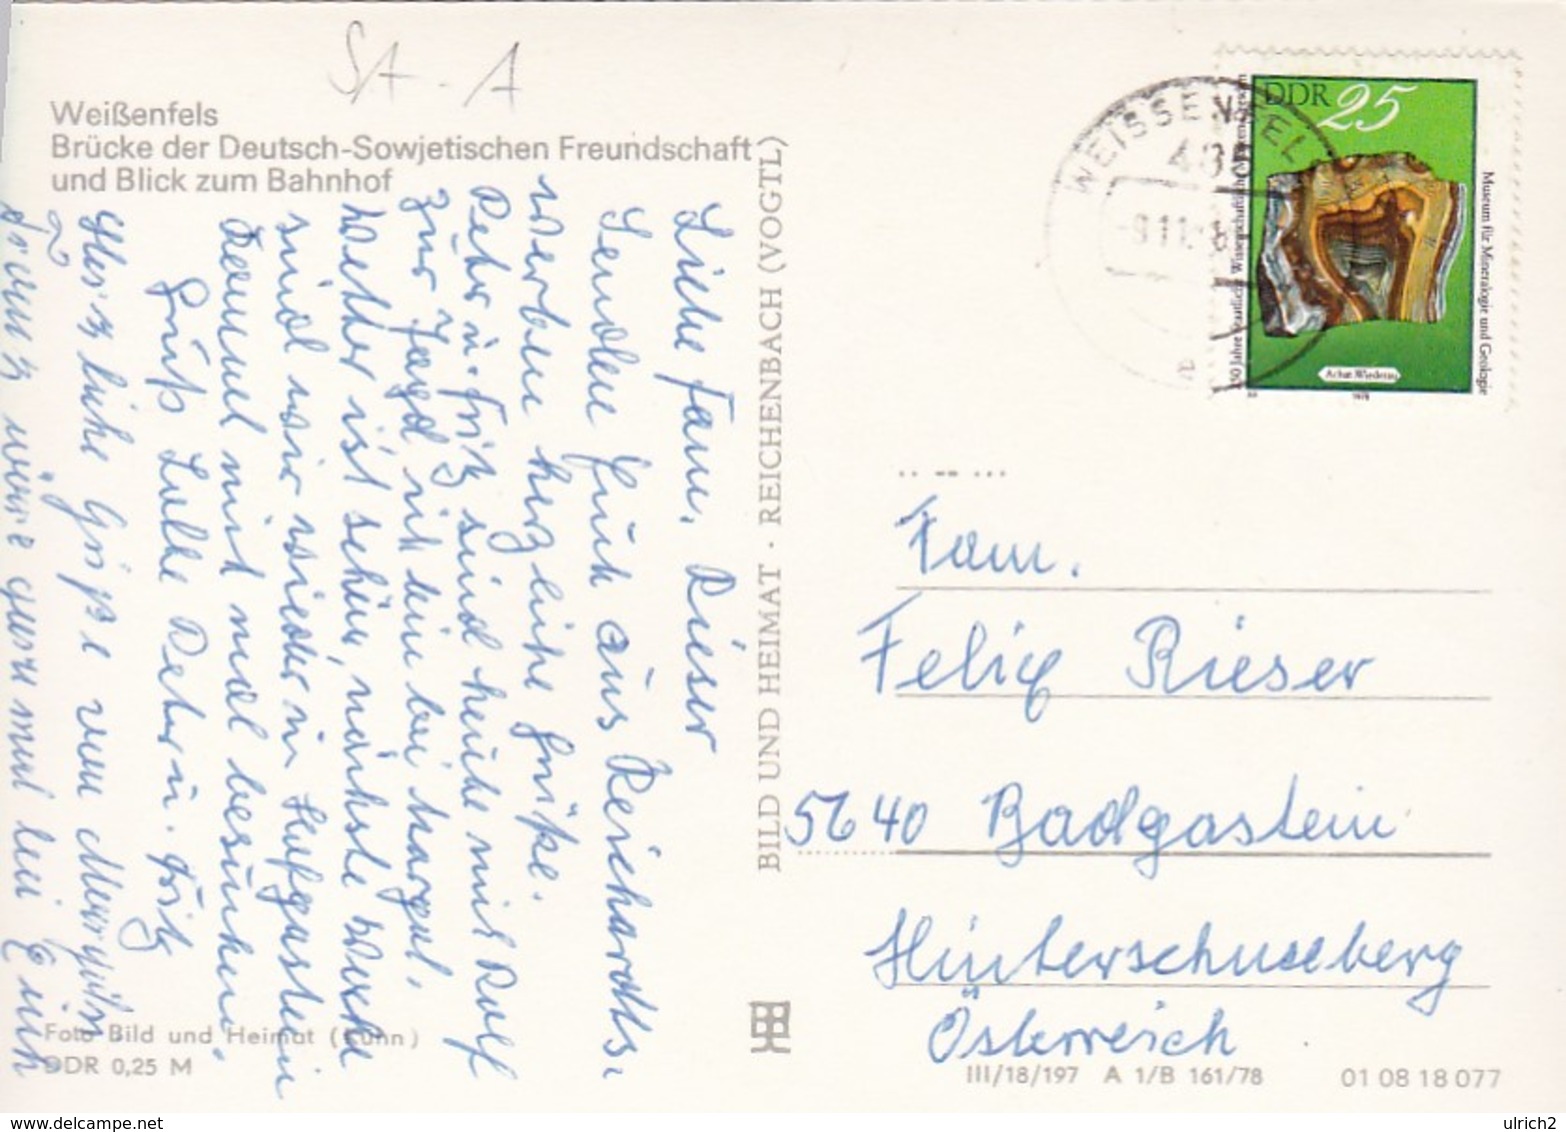 SA-A
Weißenfels
Brücke der Deutsch-Sowjetischen Freundschaft
und Blick zum Bahnhof
Liebe Fam. Rieser
Senden Euch aus Reichardts
werben herzliche Grüße.
Peter u. Fritz sind heute mit Rolf
zur Jagd mit dem bei
Wetter ist schön, nächste Woche
sind wir wieder in Hofgastein
kommt mit mal besuchen.
Gruß Lulle Peter u. Fritz
Herzliche Grüße vom
wäre gern mal bei Euch
Foto Bild und Heimat (Kühn)
DDR 0,25 M
BILD UND HEIMAT · REICHENBACH (VOGTL)
WEISSENFELS
DDR 25
Museum für Mineralogie und Geologie
Achat Wiederau
1978
Fam.
Felix Rieser
5640 Badgastein
Hinterschneeberg
Österreich
III/18/197 A 1/B 161/78
01 08 18 077
www.delcampe.net
ulrich2